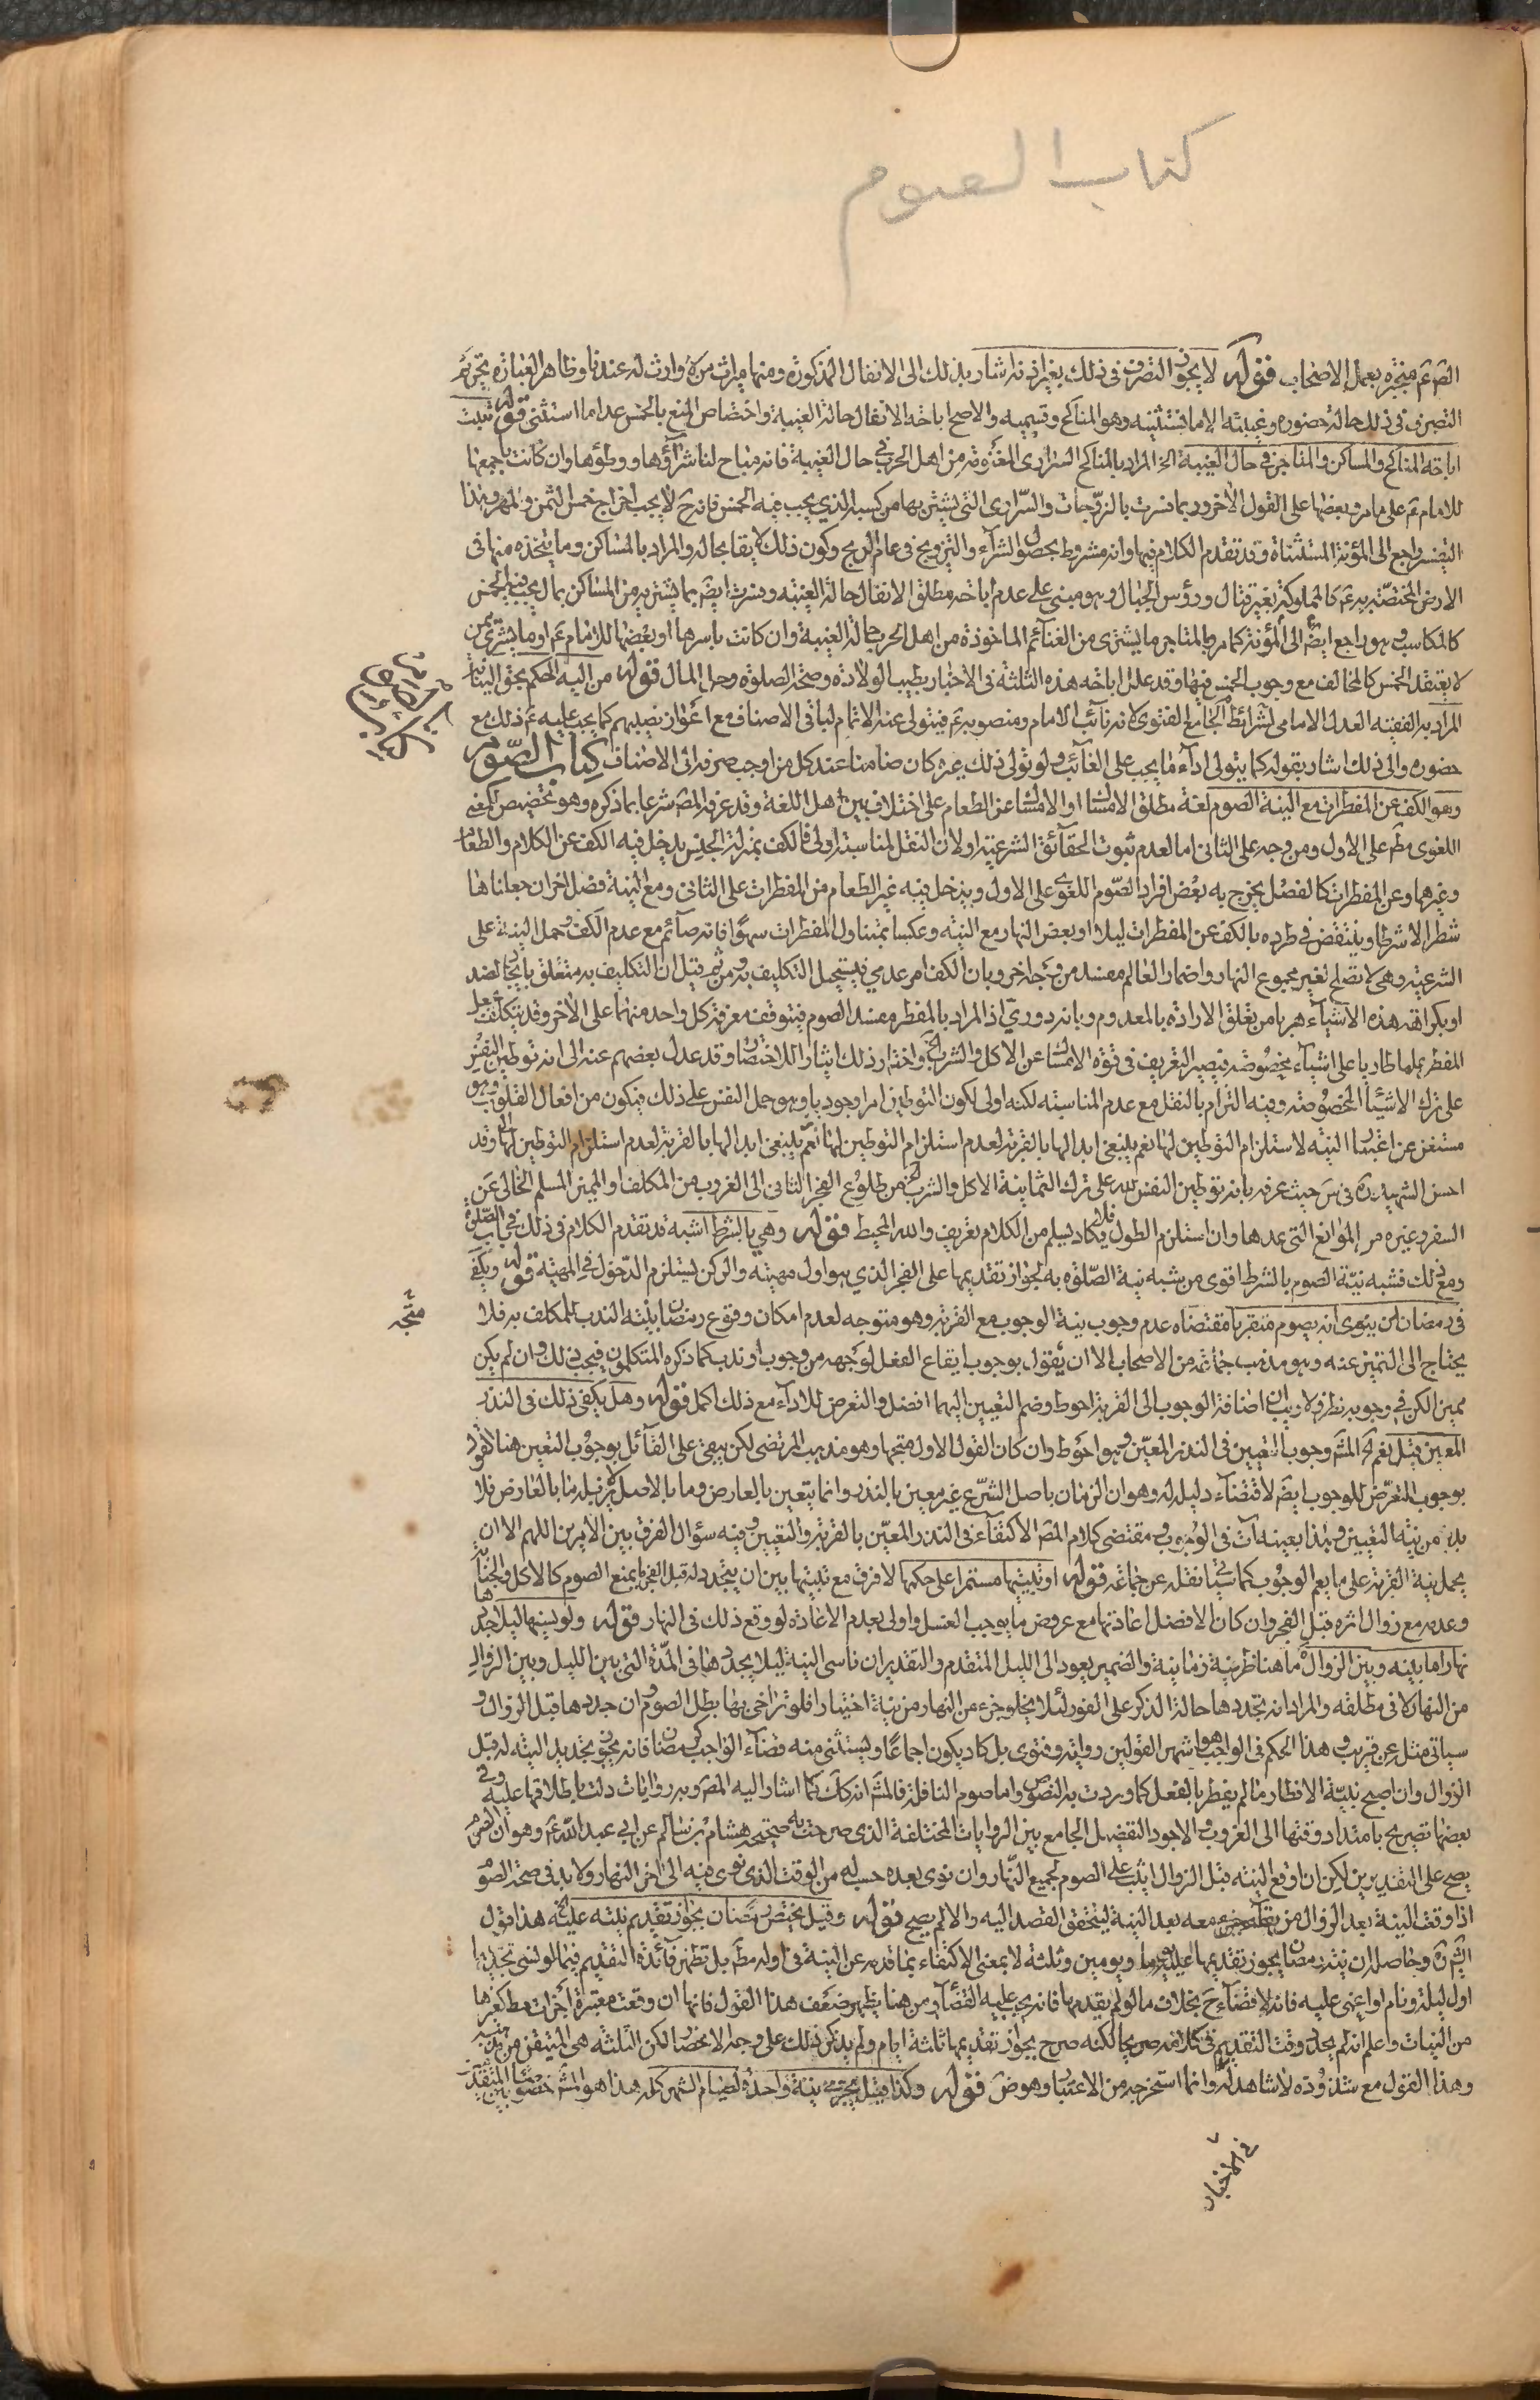 كتاب الصوم
الصّ عّ منجبره بعمل الاصحاب قوله لا يجوز التصرف فى ذلك بغير اذنه اشار بذلك الى الانفال المذكورة ومنها ميراث من لا وارث له عندنا وظاهر العبارة تحريم
التصرف فى ذلك حالة حضوره وغيبته الا ما يستثنيه وهو المناكح وقسيميه والاصح اباحة الانفال حالة الغيبة واختصاص المنع بالخمس عدا ما استثنى قوله ثبت
اباحة المناكح والمساكن والمتاجر فى حال الغيبة الخ المراد بالمناكح السرارى المغنومة من اهل الحرب فى حال الغيبة فانه مباح لنا شراؤها ووطؤها وان كانت باجمعها
للامام عّ على ما مر وبعضها على القول الآخر وربما فسرت بالزوجات والسرارى التى يشتريها من كسبه الذي يجب فيه الخمس فانه حّ لا يجب اخراج خمس الثمن والمهر وهذا
التفسير راجع الى المؤنة المستثناة وقد تقدم الكلام فيها وانه مشروط بحصول الشراء والتزويج فى عام الربح وكون ذلك لايقا بحاله والمراد بالمساكن وما يتخذه منها فى
الارض المختصة به عّ كالمملوكة بغير قتال ورؤس الجبال وهو مبنى على عدم اباحة مطلق الانفال حالة الغيبة وفسرت ايضا بما يشتريه من المساكن بمال يجب فيه الخمس
كالمكاسب وهو راجع ايضا الى المؤنة كما مر وبالمتاجر ما يشترى من الغنائم الماخوذة من اهل الحرب حالة الغيبة وان كانت باسرها او بعضها للامام عّ او ما يشترى ممن
لا يعتقد الخمس كالمخالف مع وجوب الخمس فيها وقد علل اباحة هذه الثلثة فى الاخبار بطيب الولادة وصحة الصلوة وحل المال قوله من اليه الحكم بحق النيابة
المراد به الفقيه العدل الامامى الجامع لشرائط الفتوى لانه نائب الامام ومنصوبه عّ فيتولى عنه الاتمام لباقى الاصناف مع اعواز نصيبهم كما يجب عليه عّ ذلك مع
حضوره والى ذلك اشار بقوله كما يتولى اداء ما يجب على الغائب ولو تولى ذلك غيره كان ضامنا عند كل من اوجب صرفه الى الاصناف كتاب الصوم
وهو الكف عن المفطرات مع النية الصوم لغة مطلق الامساك او الامساك عن الطعام على اختلاف بين اهل اللغة وقد عرفه المصّ شرعا بما ذكره وهو تخصيص للمعنى
اللغوى مطّ على الاول ومن وجه على الثانى اما لعدم ثبوت الحقائق الشرعية او لان النقل لمناسبة اولى فالكف بمنزلة الجنس يدخل فيه الكف عن الكلام والطعام
وغيرهما وعن المفطرات كالفصل يخرج به بعض افراد الصوم اللغوى على الاول ويدخل فيه غير الطعام من المفطرات على الثانى ومع النية فصل اخر ان جعلناها
شطرا لا شرطا وينتقض فى طرده بالكف عن المفطرات ليلا او بعض النهار مع النية وعكسا بمتناول المفطرات سهوا فانه صائم مع عدم الكف وحمل النية على
الشرعية وهى لا تصلح لغير مجموع النهار واضمار العالم مفسد من وجه اخر وبان الكف امر عدمى فيستحيل التكليف به ومن ثم قيل ان التكليف به متعلق بايجاد الضد
او بكراهة هذه الاشياء هربا من تعلق الارادة بالمعدوم وبانه دورى اذ المراد بالمفطر مفسد الصوم فيتوقف معرفة كل واحد منهما على الآخر وقد يتكلف لجعل
المفطر علما طاريا على اشياء مخصوصة فيصير التعريف فى قوة الامساك عن الاكل والشرب الخ واختار ذلك ايثارا للاختصار وقد عدل بعضهم عنه الى انه توطين النفس
على ترك الاشياء المخصوصة وفيه التزام بالنقل مع عدم المناسبة لكنه اولى لكون التوطين امرا وجوديا وهو حمل النفس على ذلك فيكون من افعال القلوب وهو
مستغن عن اعتبار النية لاستلزام التوطين لها نعم ينبغى ابدالها بالقربة لعدم استلزام التوطين لها وقد
احسن الشهيد ره فى س حيث عرفه بانه توطين النفس لله على ترك الثمانية الاكل والشرب الخ من طلوع الفجر الثانى الى الغروب من المكلف او المميز المسلم الخالى عن
السفر وغيره من الموانع التى عدها وان استلزم الطول فلا يكاد يسلم من الكلام تعريف والله المحيط قوله وهي بالشرط اشبه قد تقدم الكلام فى ذلك فى باب الصلوة
ومع ذلك فشبه نية الصوم بالشرط اقوى من شبه نية الصلوة به لجواز تقديمها على الفجر الذي هو اول مهيته والركن يستلزم الدخول فى المهية قوله ويكفى
فى رمضان ان ينوى انه يصوم متقربا مقتضاه عدم وجوب نية الوجوب مع القربة وهو متوجه لعدم امكان وقوع رمضان بنية الندب للمكلف به فلا
متّجه
يحتاج الى التميز عنه وهو مذهب جماعة من الاصحاب الا ان يقول بوجوب ايقاع الفعل لوجهه من وجوب او ندب كما ذكره المتكلمون فيجب ذلك وان لم يكن
مميزا لكن فى وجوبه نظر ولا ريب ان اضافة الوجوب الى القربة احوط وضم التعيين اليهما افضل والتعرض للاداء مع ذلك اكمل قوله وهل يكفى ذلك فى النذر
المعين قيل نعم الخ المشّ وجوب التعيين فى النذر المعين وهو احوط وان كان القول الاول متجها وهو مذهب المرتضى لكن يبقى على القائل بوجوب التعيين هنا القول
بوجوب التعرض للوجوب ايضا لاقتضاء دليله له وهو ان الزمان باصل الشرع غير معين بالنذر وانما يتعين بالعارض وما بالاصل لا يزيله ما بالعارض فلا
بد من نية التعيين وهذا بعينه آت فى الوجوب ومقتضى كلام المصّ الاكتفاء فى النذر المعين بالقربة والتعيين وفيه سؤال الفرق بين الامرين اللهم الا ان
يحمل نية القربة على ما يعم الوجوب كما سبق نقله عن جماعة قوله او تبييتها مستمرا على حكمها لا فرق مع تبييتها بين ان يتجدد له قبل الفجر ما يمنع الصوم كالاكل والجنابة
وعدمه مع زوال اثره قبل الفجر وان كان الافضل اعادتها مع عروض ما يوجب الغسل واولى بعدم الاعادة لو وقع ذلك فى النهار قوله ولو نسيها ليلا جددها
نهارا ما بينه وبين الزوال ما هنا ظرفية زمانية والضمير يعود الى الليل المتقدم والتقدير ان ناسى النية ليلا يجددها فى المدة التى بين الليل وبين الزوال
من النهار لا فى مطلقه والمراد انه يجددها حالة الذكر على الفور لئلا يخلو جزء من النهار من نية اختيارا فلو تراخى بها بطل الصوم وان جددها قبل الزوال و
سياتى مثله عن قريب وهذا الحكم فى الواجب هو اشهر القولين رواية وفتوى بل كاد يكون اجماعا ويستثنى منه قضاء الواجب كرمضان فانه يجوز تجديد النية له قبل
الزوال وان اصبح بنية الافطار ما لم يفطر بالفعل كما وردت به النصوص واما صوم النافلة فالمشّ انه كك كما اشار اليه المصّ وبه روايات دلت باطلاقها عليه وفى
بعضها تصريح بامتداد وقتها الى الغروب والاجود التفصيل الجامع بين الروايات المختلفة الذى صرحت به صحيحة هشام بن سالم عن ابى عبد الله عّ وهو ان الصوم
يصح على التقديرين لكن ان اوقع النية قبل الزوال اثيب على الصوم لجميع النهار وان نوى بعده حسب له من الوقت الذى نوى فيه الى اخر النهار ولا بد فى صحة الصوم
اذا وقف النية بعد الزوال من بقاء جزء معه بعد النية ليتحقق القصد اليه والا لم يصح قوله وقيل يختص رمضان بجواز تقديم نيته عليه الخ هذا قول
الشيخ ره وحاصله ان نية رمضان يجوز تقديمها عليه يوما ويومين وثلثة لا بمعنى الاكتفاء بما قدمه عن النية فى اوله مطّ بل تظهر فائدة التقديم فيما لو نسى تجديدها
اول ليلة ونام او اغمى عليه فانه لا قضاء حّ بخلاف ما لو لم يقدمها فانه يجب عليه القضاء ومن هنا يظهر ضعف هذا القول فانها ان وقعت معتبرة اجزات مطّ كغيرها
من النيات واعلم انه لم يحد وقت التقديم فى كلامه صريحا لكنه صرح بجواز تقديمها ثلثة ايام ولم يذكر ذلك على وجه الانحصار لكن الثلثة هى المتيقن من مذهبه
وهذا القول مع شذوذه لا شاهد له وانما استخرجه من الاعتبار وهو ضّ قوله وكذا قيل يجزى نية واحدة لصيام الشهر كله هذا هو المشّ خصوصا بين المتقدمين
فى الاخبار